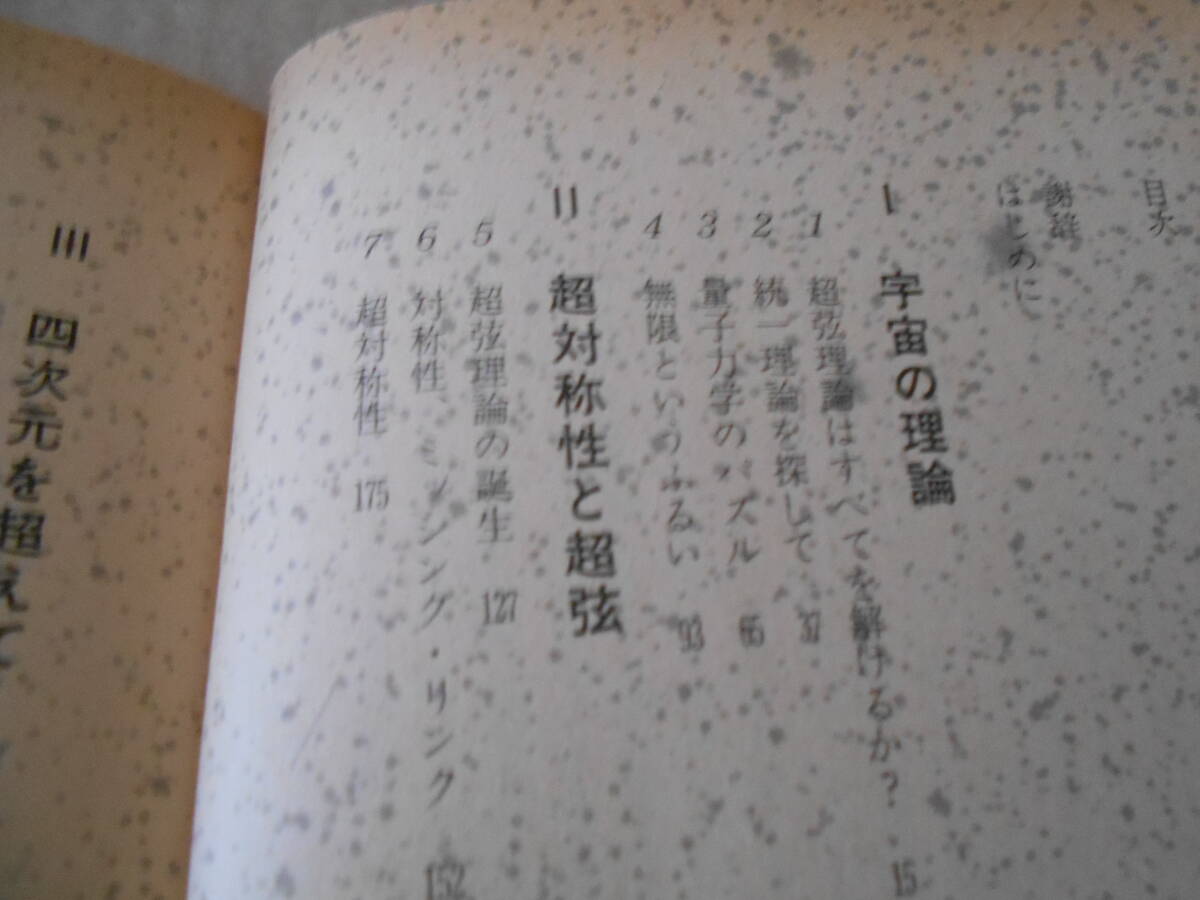 目次
謝辞
はじめに
I 宇宙の理論
1 超弦理論はすべてを解けるか? 15
2 統一理論を探して 37
3 量子力学のパズル 65
4 無限というふるい 93
II 超対称性と超弦
5 超弦理論の誕生 127
6 対称性、ミッシング・リンク 152
7 超対称性 175
III 四次元を超えて